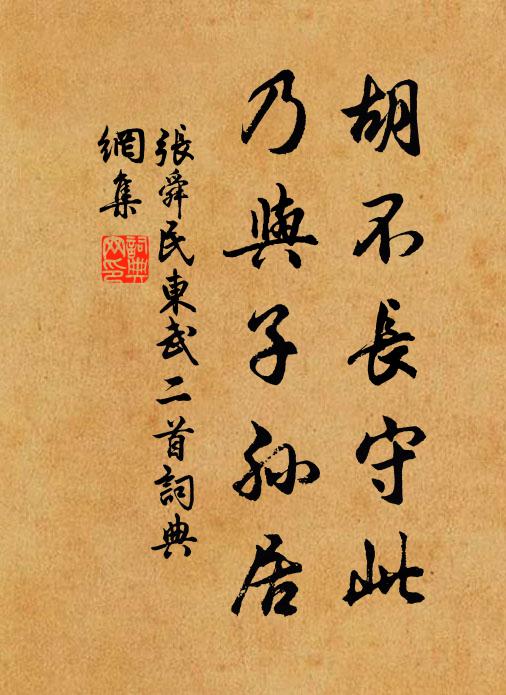 胡不長守此
乃與子孫居
張舜民東武二首詞典
網集
詞典網印